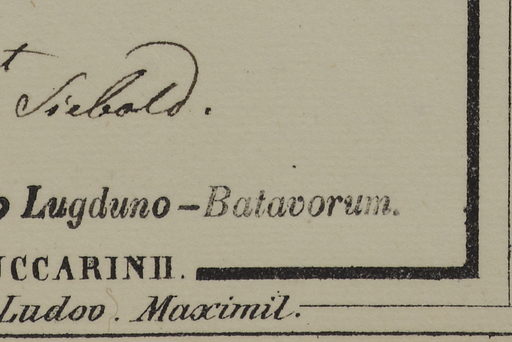 t
Siebold.
o Lugduno-Batavorum.
UCCARINII.
Ludov. Maximil.